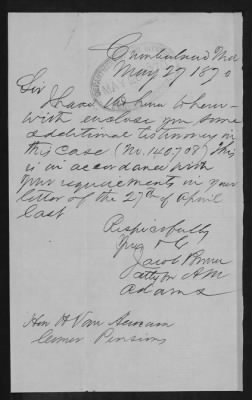 Cumberland Md
May 27 1870
Sir
I have the honor to here-
with enclose you some
additional testimony in
this case (No. 140,708) This
is in accordance with
your requirements in your
letter of the 27th of April
last
Respectfully
Yrs &c
Jacob
Atty for A M
Adams
Hon H Van Aernam
Comr Pensions